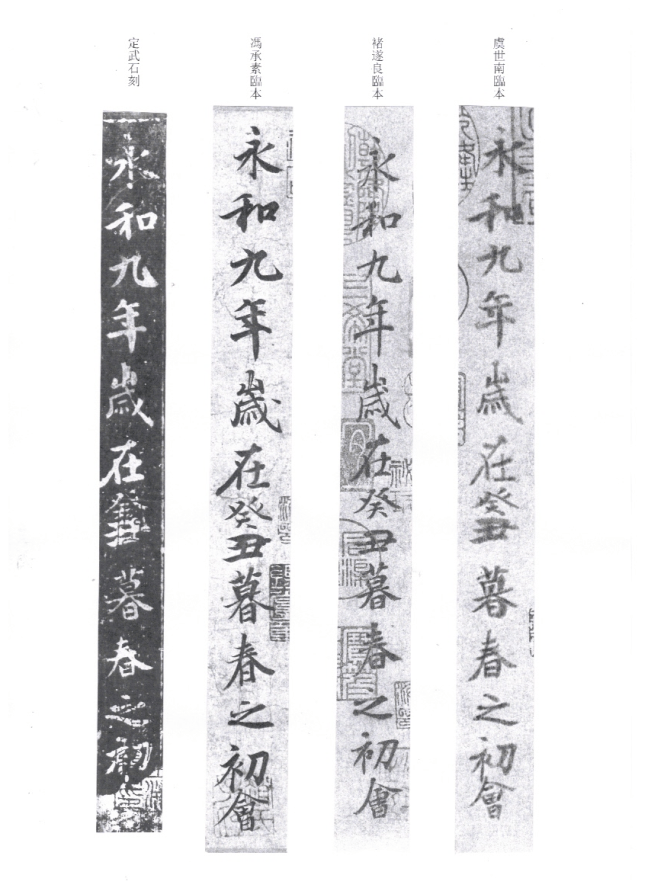 虞世南臨本
永和九年歲在癸丑暮春之初會
褚遂良臨本
永和九年歲在癸丑暮春之初會
馮承素臨本
永和九年歲在癸丑暮春之初會
定武石刻
永和九年歲在癸丑暮春之初